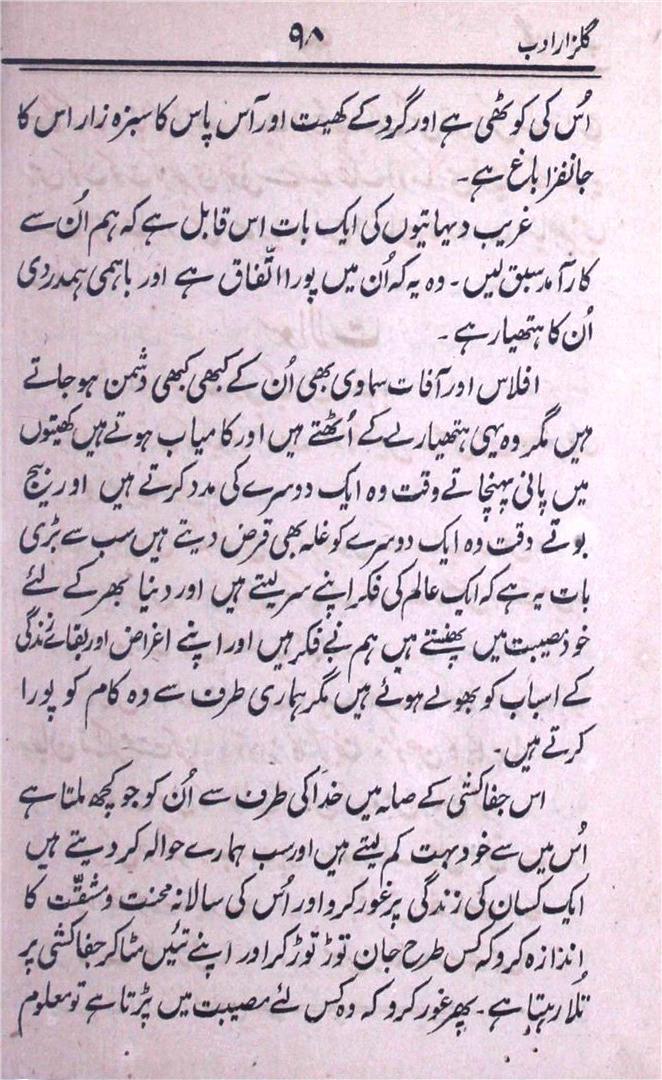 گلزار ادب
۹۸
اُس کی کوٹھی ہے اور گرد کے کھیت اور آس پاس کا سبزہ زار اس کا
جانفزا باغ ہے۔
غریب دیہاتیوں کی ایک بات اس قابل ہے کہ ہم اُن سے
کارآمد سبق لیں۔ وہ یہ کہ اُن میں پورا اتّفاق ہے اور باہمی ہمدردی
اُن کا ہتھیار ہے۔
افلاس اور آفات سماوی بھی اُن کے کبھی کبھی دشمن ہو جاتے
ہیں مگر وہ یہی ہتھیار لے کے اُٹھتے ہیں اور کامیاب ہوتے ہیں کھیتوں
میں پانی پہنچاتے وقت وہ ایک دوسرے کی مدد کرتے ہیں اور بیج
بوتے وقت وہ ایک دوسرے کو غلہ بھی قرض دیتے ہیں سب سے بڑی
بات یہ ہے کہ ایک عالم کی فکر اپنے سر لیتے ہیں اور دنیا بھر کے لئے
خود مصیبت میں پھنستے ہیں ہم بے فکر ہیں اور اپنے اغراض اور بقائے زندگی
کے اسباب کو بھولے ہوئے ہیں مگر ہماری طرف سے وہ کام کو پورا
کرتے ہیں۔
اس جفاکشی کے صلہ میں خدا کی طرف سے اُن کو جو کچھ ملتا ہے
اُس میں سے خود بہت کم لیتے ہیں اور سب ہمارے حوالہ کر دیتے ہیں
ایک کسان کی زندگی پر غور کرو اور اُس کی سالانہ محنت و مشقّت کا
اندازہ کرو کہ کس طرح جان توڑ توڑ کر اور اپنے تئیں مٹا کر جفاکشی پر
تُلا رہتا ہے۔ پھر غور کرو کہ وہ کس لئے مصیبت میں پڑتا ہے تو معلوم